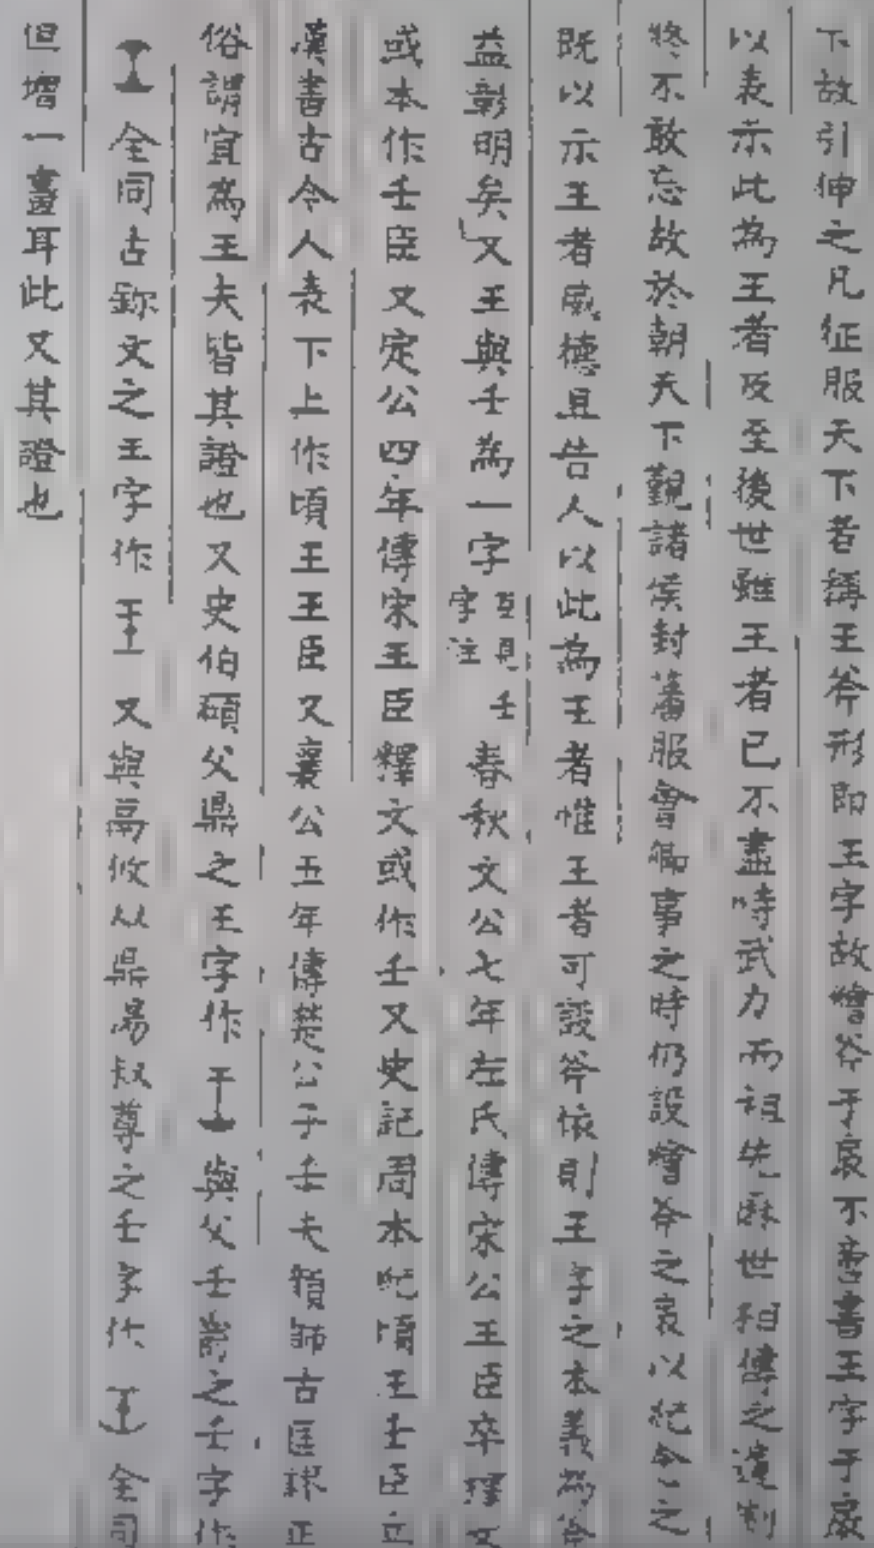 下故引伸之凡征服天下者稱王斧形即王字故繪斧于扆不啻書王字于扆
以表示此為王者及至後世雖王者已不盡時武力而祖先歷世相傳之遺制
終不敢忘故於朝天下覲諸侯封蕃服會卿事之時仍設繪斧之扆以紀念之
既以示王者威德且告人以此為王者惟王者可設斧依則王字之本義為斧
益彰明矣又王與壬為一字互見壬字注春秋文公七年左氏傳宋公王臣卒釋文
或本作壬臣又定公四年傳宋王臣釋文或作壬又史記周本紀頃王壬臣立
漢書古今人表下上作頃王王臣又襄公五年傳楚公子壬夫顏師古匡謬正
俗謂宜為王夫皆其證也又史伯碩父鼎之王字作 與父壬爵之壬字作
全同古鉨文之王字作 又與鬲攸从鼎湯叔尊之壬字作 全同
但增一畫耳此又其證也